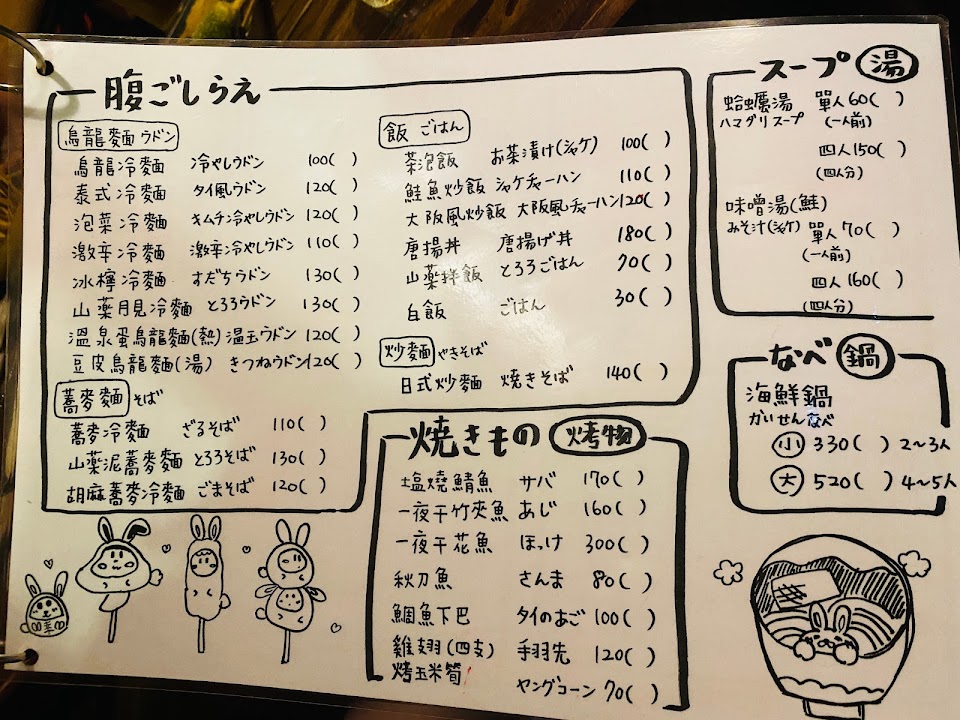 腹ごしらえ
烏龍麵 ウドン
烏龍冷麵 冷やしウドン 100( )
泰式冷麵 タイ風ウドン 120( )
泡菜冷麵 キムチ冷やしウドン 120( )
激辛冷麵 激辛冷やしウドン 110( )
冰檸冷麵 すだちウドン 130( )
山藥月見冷麵 とろろウドン 130( )
溫泉蛋烏龍麵(熱) 温玉ウドン 120( )
豆皮烏龍麵(湯) きつねウドン 120( )
蕎麥麵 そば
蕎麥冷麵 ざるそば 110( )
山藥泥蕎麥麵 とろろそば 130( )
胡麻蕎麥冷麵 ごまそば 120( )
飯 ごはん
茶泡飯 お茶漬け(シャケ) 100( )
鮭魚炒飯 シャケチャーハン 110( )
大阪風炒飯 大阪風チャーハン 120( )
唐揚丼 唐揚げ丼 180( )
山藥拌飯 とろろごはん 70( )
白飯 ごはん 30( )
炒麵 やきそば
日式炒麵 焼きそば 140( )
焼きもの 烤物
塩燒鯖魚 サバ 170( )
一夜干竹夾魚 あじ 160( )
一夜干花魚 ほっけ 300( )
秋刀魚 さんま 80( )
鯛魚下巴 タイのあご 100( )
雞翅(四支) 手羽先 120( )
烤玉米筍 ヤングコーン 70( )
スープ 湯
蛤蠣湯 單人 60( )
ハマグリスープ (一人前)
四人 150( )
(四人分)
味噌湯(鮭)
みそ汁(シャケ) 單人 70( )
(一人前)
四人 160( )
(四人分)
なべ 鍋
海鮮鍋
かいせんなべ
小 330( ) 2~3人
大 520( ) 4~5人